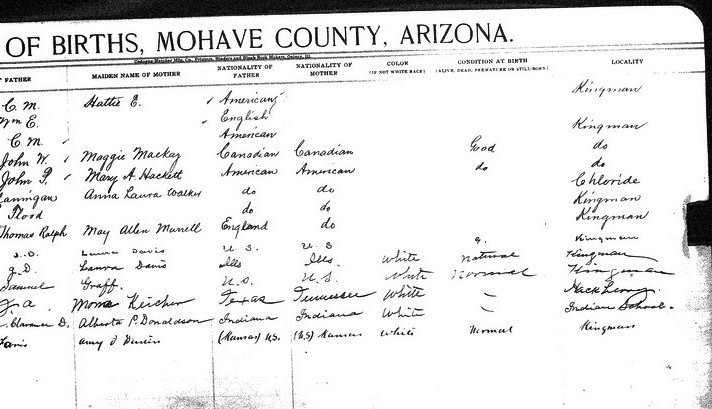 OF BIRTHS, MOHAVE COUNTY, ARIZONA.
FATHER MAIDEN NAME OF MOTHER NATIONALITY OF FATHER NATIONALITY OF MOTHER COLOR (IF NOT WHITE RACE) CONDITION AT BIRTH (ALIVE, DEAD, PREMATURE OR STILL-BORN) LOCALITY
C. M. Hattie E. American Kingman
Wm E. English
C. M. American Kingman
John W. Maggie Mackay Canadian Canadian Good do
John P. Mary A Hackett American American do do
Lannigan Anna Laura Walker do do Chloride
Flood do do Kingman
Thomas Ralph May Allen Murrell England do Kingman
J. D. Laura Davis U. S. U S Kingman
J. D. Laura Davis Ills Ills. White Natural Kingman
Samuel Graff. U.S. U.S. White Normal Kingman
Kircher Texas Tennessee White –
Clarence D. Alberta P. Donaldson Indiana Indiana White – Indian School.
Amy (Kansas) U.S. (U.S) Kansas White Normal Kingman